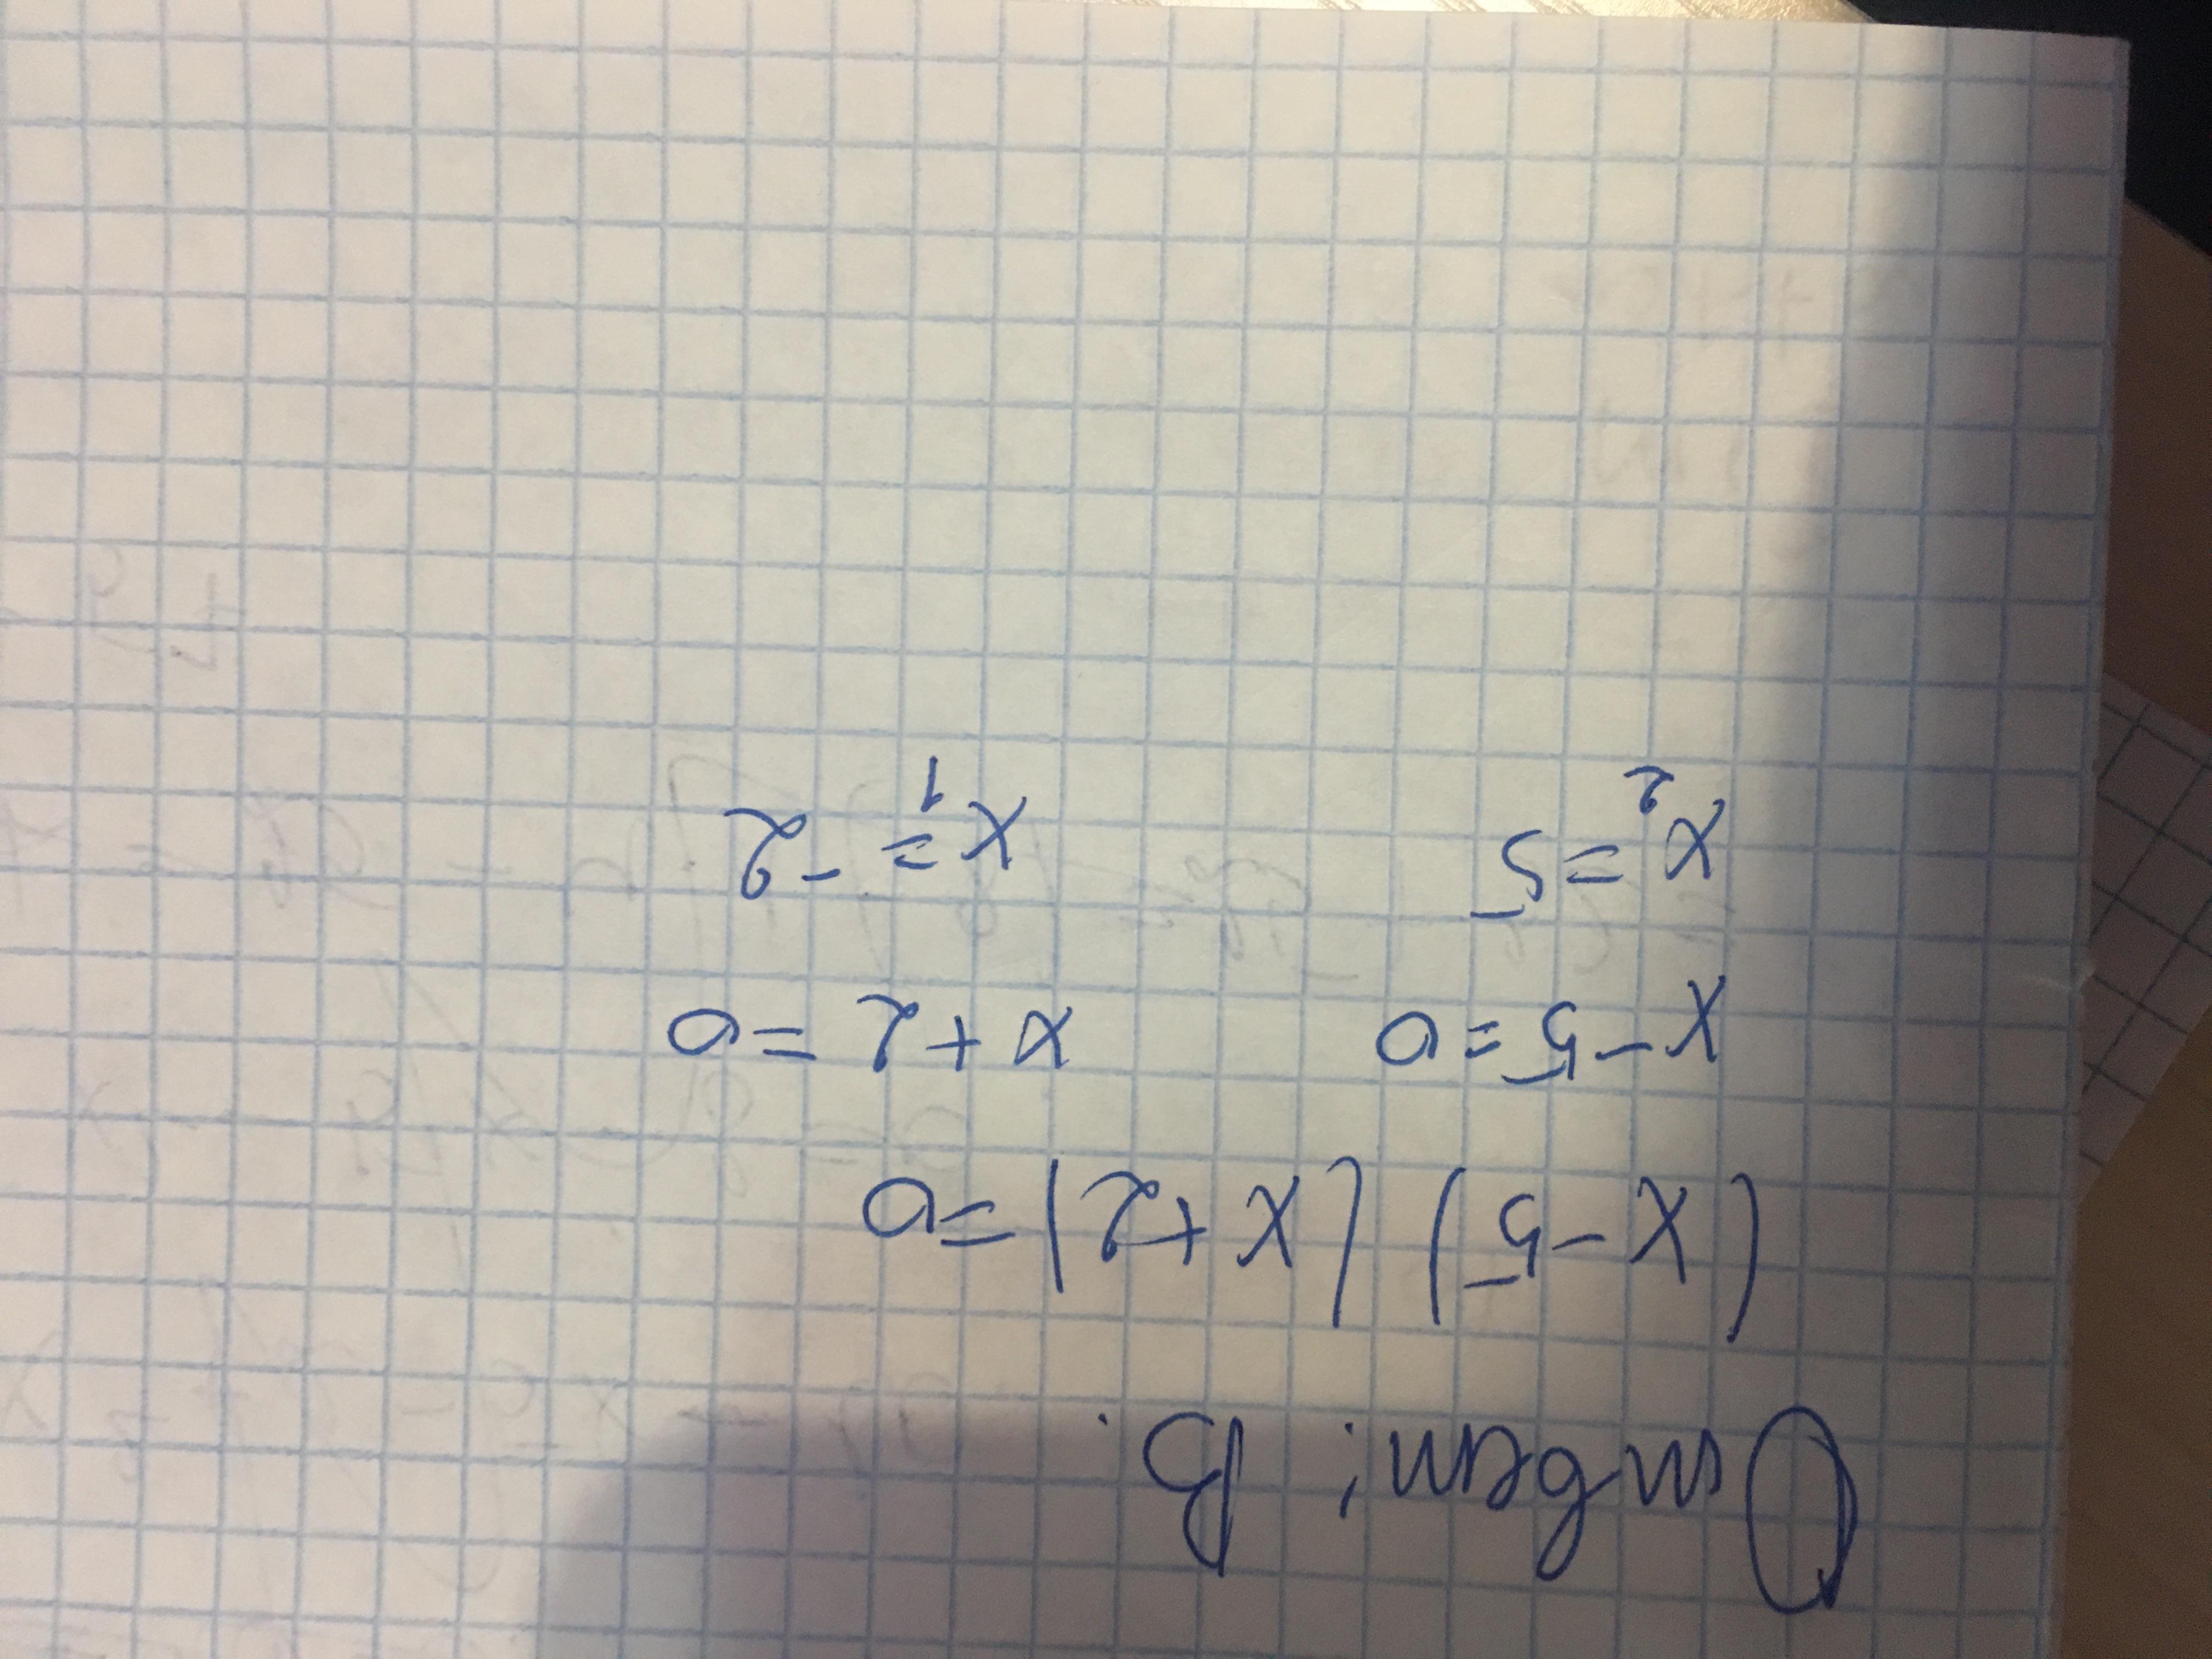 Ответ: В.
(x-5)(x+2)=0
x-5=0 x+2=0
x₂=5 x₁=-2